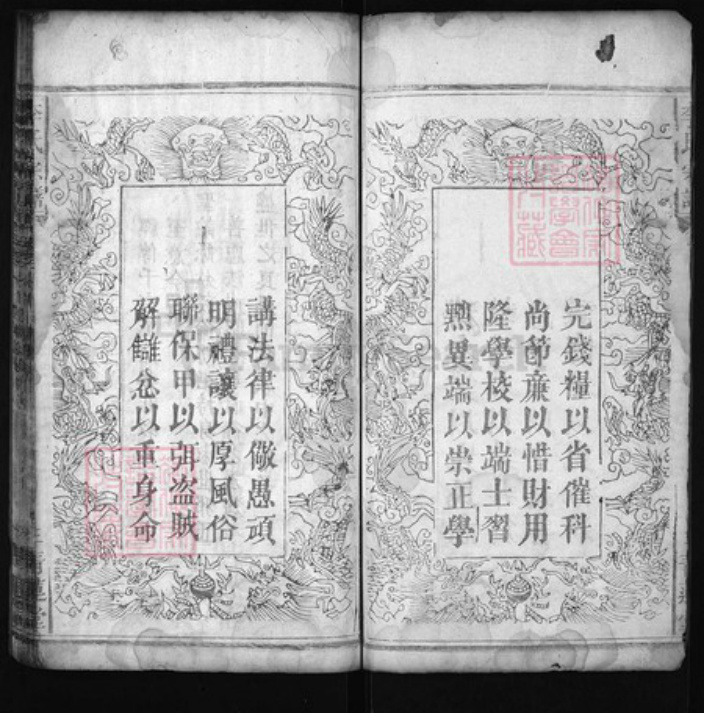 完錢糧以省催科
尚節亷以惜財用
隆學校以端士習
黜異端以崇正學
講法律以儆愚頑
明禮讓以厚風俗
聯保甲以弭盗賊
解讎忿以重身命